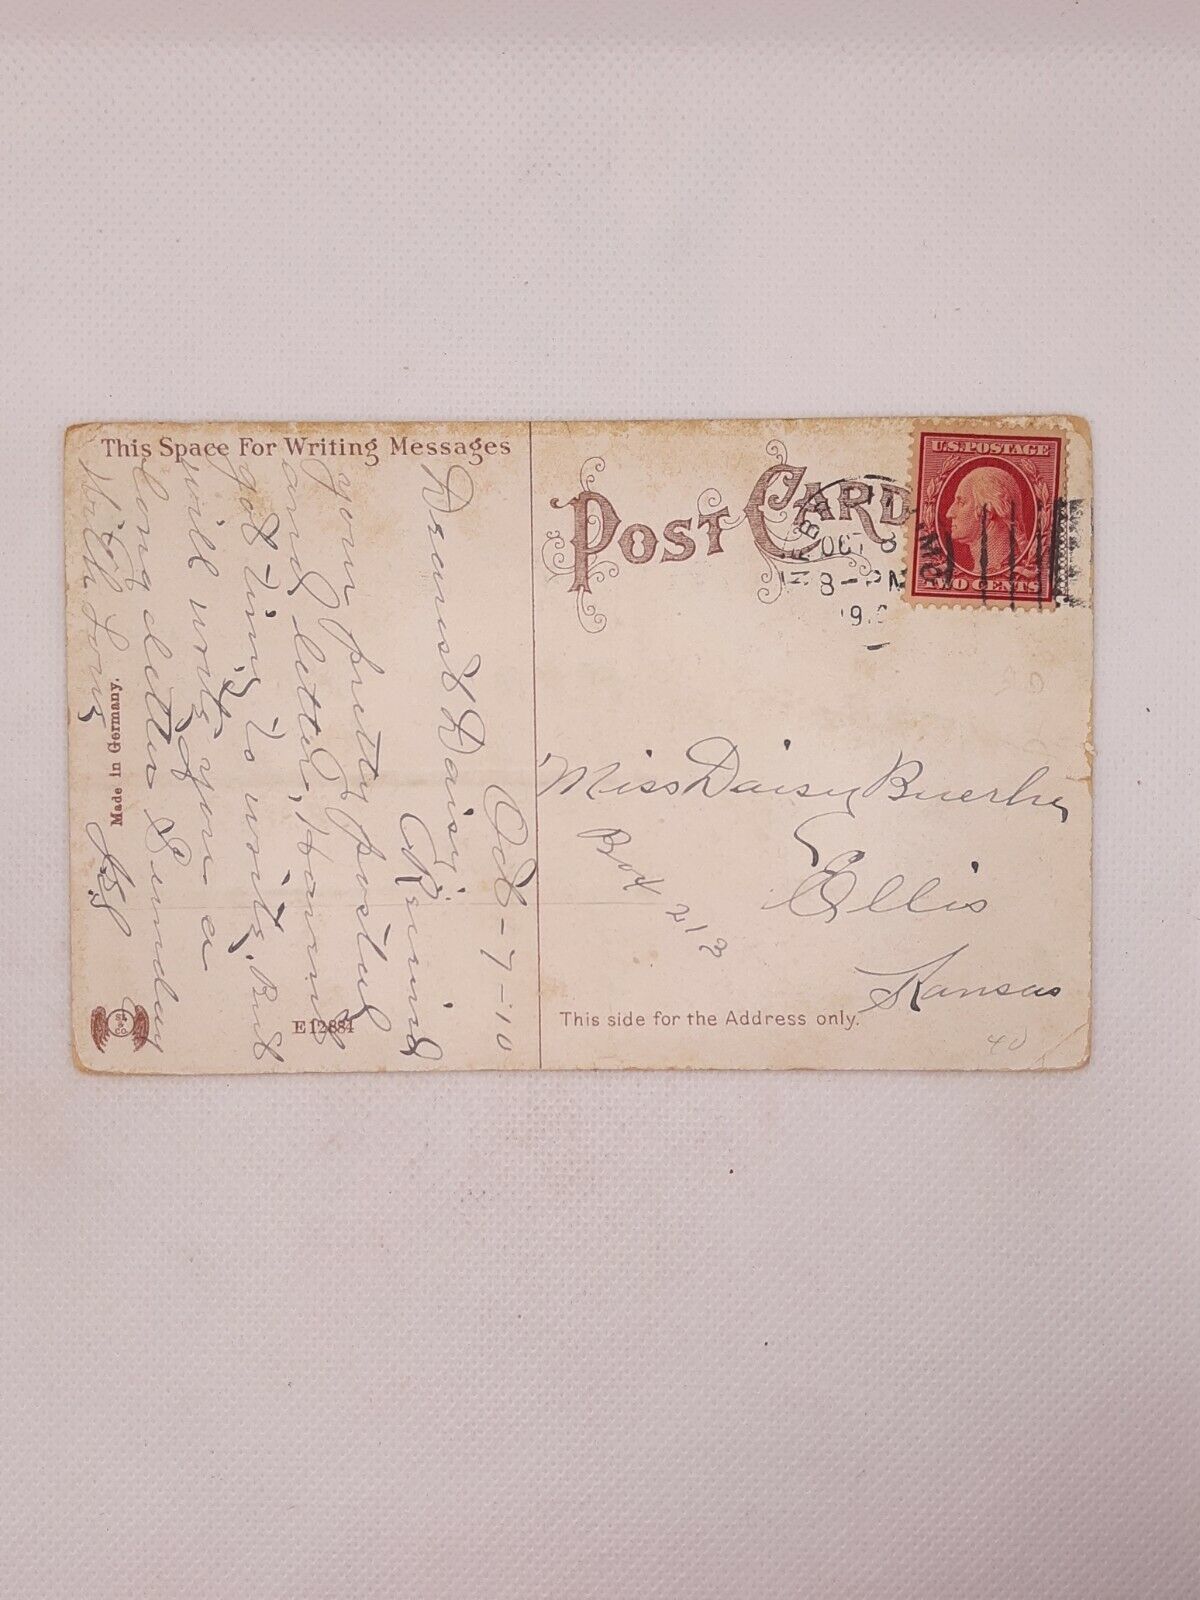 This Space For Writing Messages
Oct-7-10
Dearest Daisy
your pretty postal
and letter, Haven't
got time to write. But
will write you a
long letter Sunday
With Love
Made in Germany.
E 12884
POST CARD
OCT 8
8-PM
U.S. POSTAGE
TWO CENTS
Miss Daisy
Box 212
Ellis
Kansas
This side for the Address only.
40